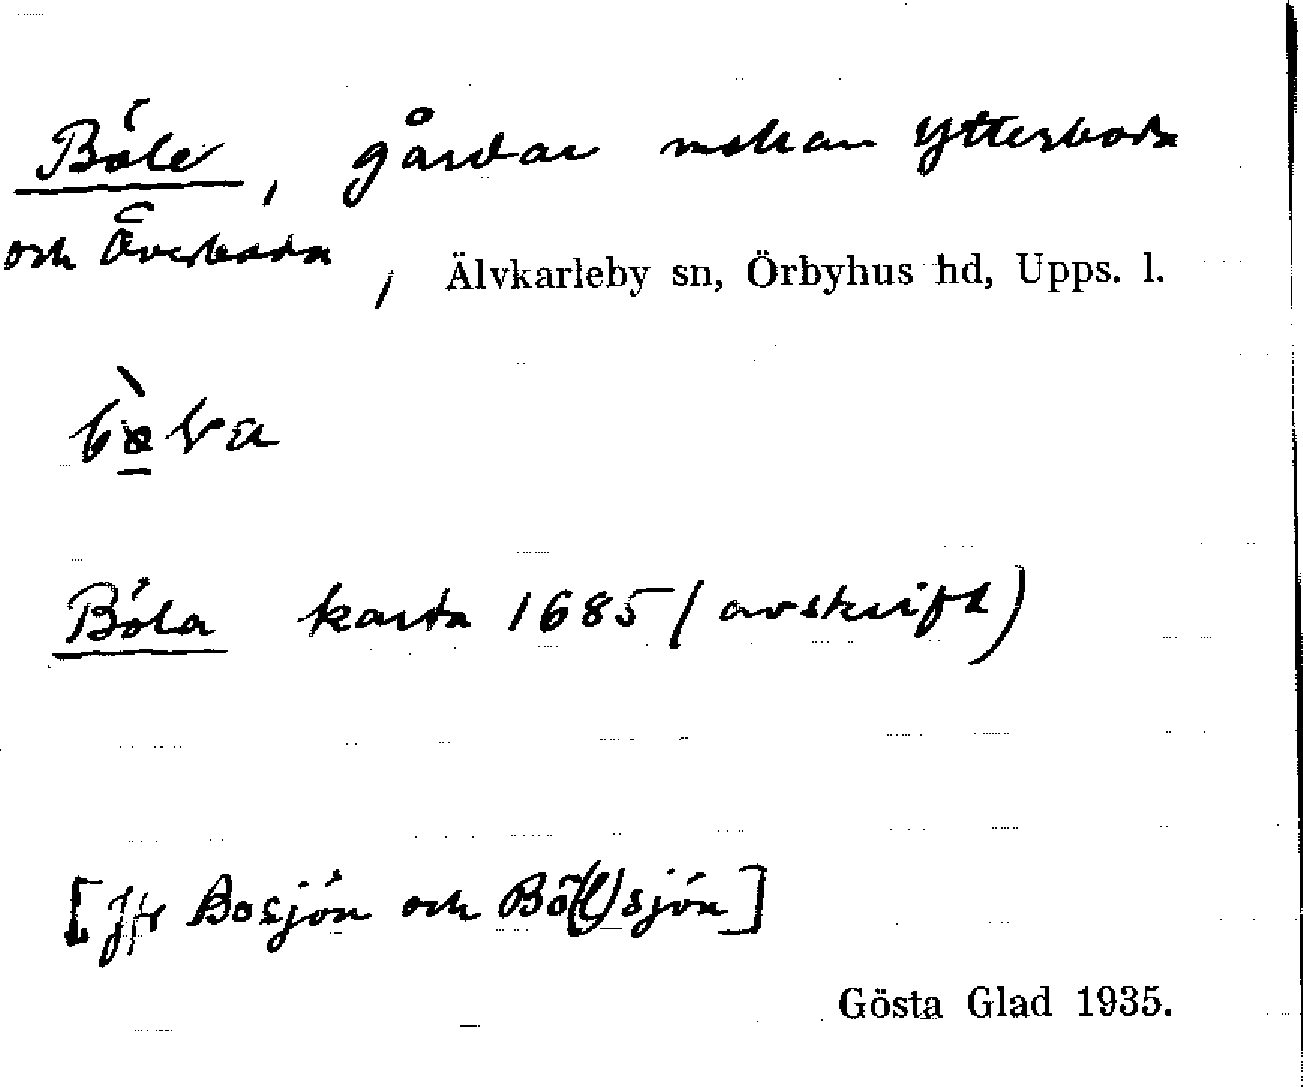 Böle, gårdar mellan Ytterboda
och Överboda, Älvkarleby sn, Örbyhus hd, Upps. l.
Böla karta 1685 (avskrift)
[Jfr Bosjön och Bö(l)sjön]
Gösta Glad 1935.